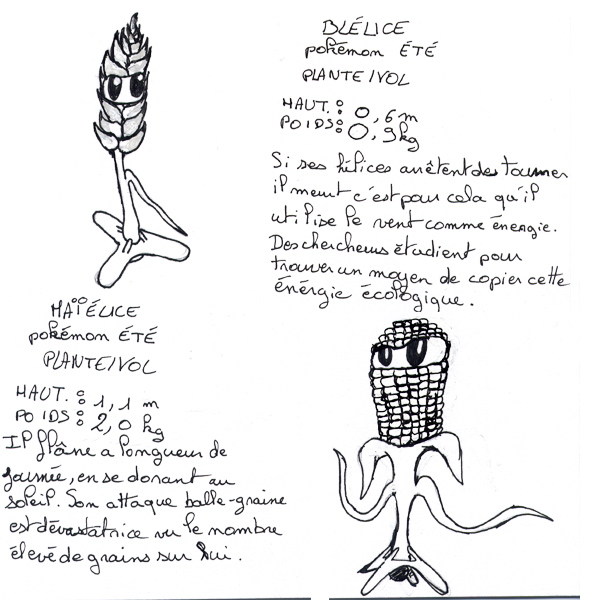 BLÉLICE
pokémon ÉTÉ
PLANTE/VOL
HAUT. : 0,6 m
POIDS : 0,9 kg
Si ses hélices arrêtent de tourner
il meurt c'est pour cela qu'il
utilise le vent comme énergie.
Des chercheurs étudient pour
trouver un moyen de copier cette
énérgie écologique.
MAÏÉLICE
pokémon ÉTÉ
PLANTE/VOL
HAUT. : 1,1 m
POIDS : 2,0 kg
Il flâne a longueur de
journée, en se dorant au
soleil. Son attaque balle-graine
est dévastatrice vu le nombre
élevé de grains sur lui.